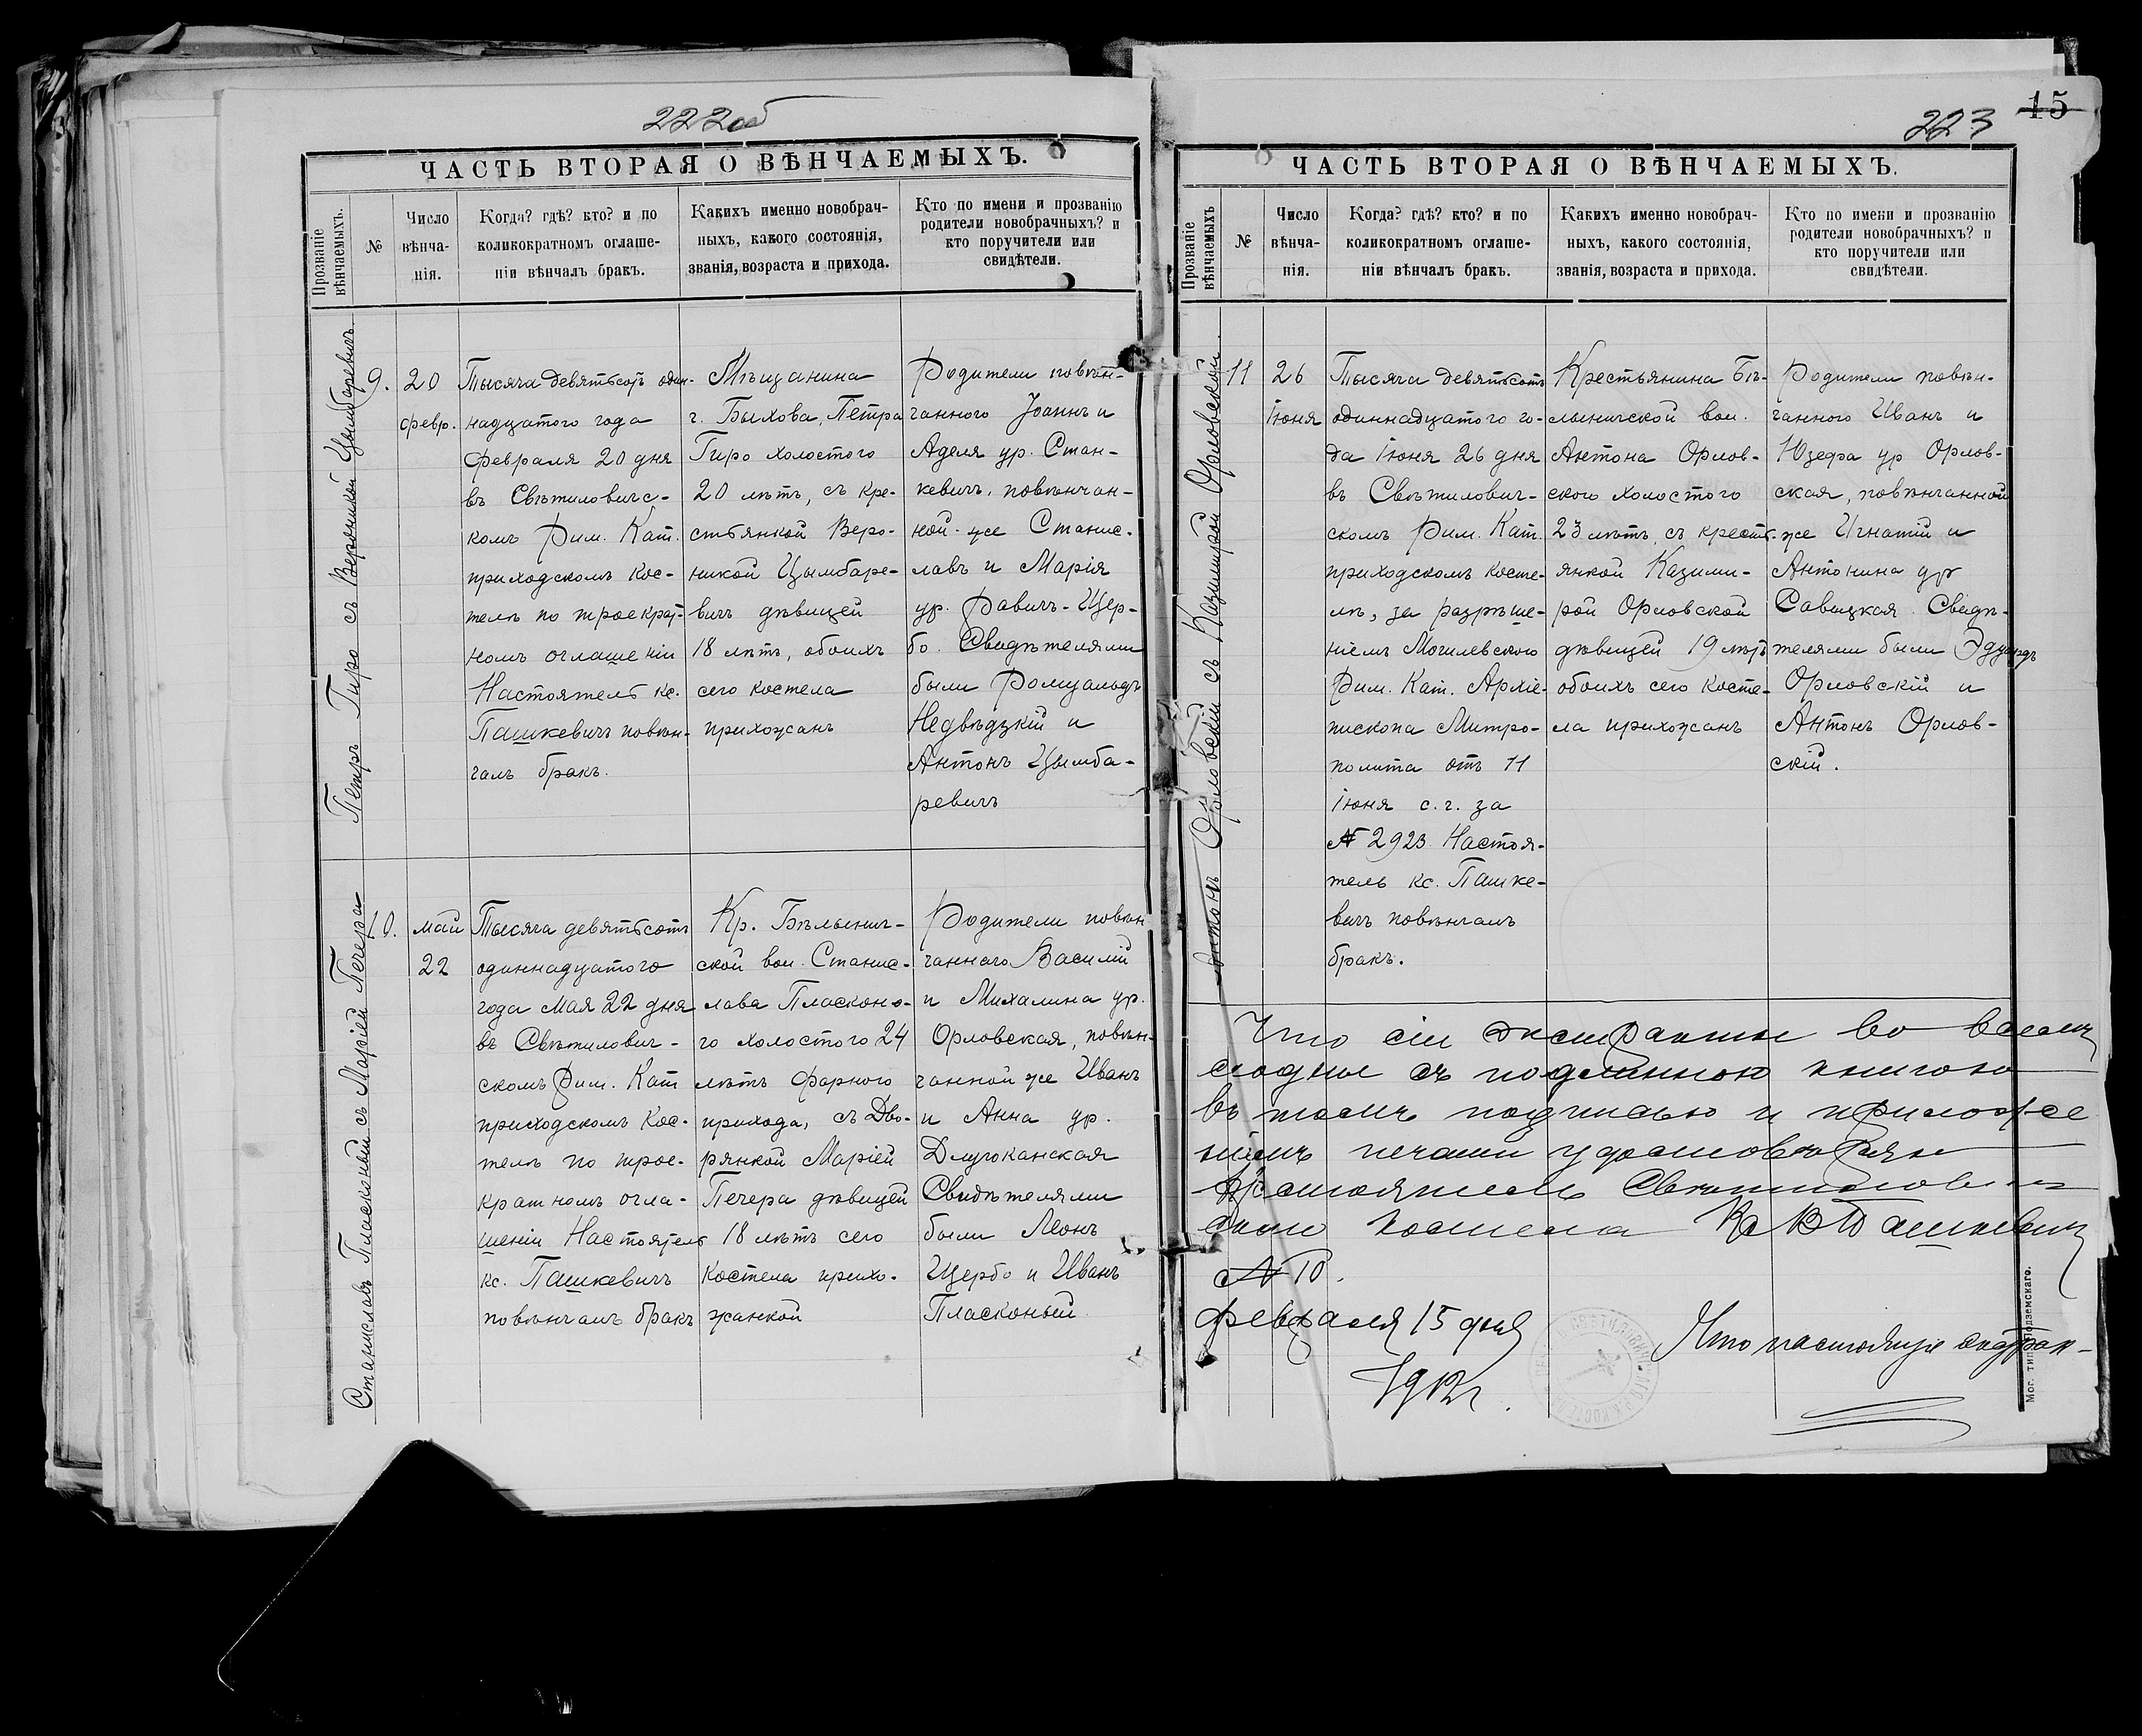 222об
ЧАСТЬ ВТОРАЯ О ВѢНЧАЕМЫХЪ.
Прозваніе вѣнчаемыхъ.
№
Число вѣнча-
нія.
Когда? гдѣ? кто? и по
коликократномъ оглаше-
ніи вѣнчалъ бракъ.
Какихъ именно новобрач-
ныхъ, какого состоянія,
званія, возраста и прихода.
Кто по имени и прозванію
родители новобрачныхъ? и
кто поручители или
свидѣтели.
Петръ Гиро съ Вероникой Цымбаревичъ
9.
20
февр.
Тысяча девятьсотъ один-
надцатого года
февраля 20 дня
въ Свѣтиловичс-
комъ Рим. Кат.
приходскомъ Кос-
телѣ по троекрат-
номъ оглашеніи
Настоятель кс.
Пашкевичъ повѣн-
чалъ бракъ.
Мѣщанина
г. Быхова, Петра
Гиро холостого
20 лѣтъ, съ кре-
стьянкой Веро-
никой Цымбаре-
вичъ дѣвицей
18 лѣтъ, обоихъ
сего костела
прихожанъ
Родители повѣн-
чанного Іоаннъ и
Аделя ур. Стан-
кевичъ, повѣнчан-
ной-же Станис-
лавъ и Марія
ур. Равичъ-Щер-
бо. Свидѣтелями
были Ромуальдъ
Недвѣдзкій и
Антонъ Цымба-
ревичъ
Станиславъ Пласконый съ Маріей Печера
10.
май
22
Тысяча девятьсотъ
одиннадцатого
года мая 22 дня
въ Свѣтилович-
скомъ Рим. Кат
приходскомъ Кос-
телѣ по трое-
кратномъ огла-
шеніи Настоятель
кс. Пашкевичъ
повѣнчалъ бракъ
Кр. Бѣлынич-
ской вол. Станис-
лава Пласконо-
го холостого 24
лѣтъ фарного
прихода, съ Дво-
рянкой Маріей
Печера дѣвицей
18 лѣтъ сего
костела прихо-
жанкой
Родители повѣн
чанного Василій
и Михалина ур.
Орловская, повѣн-
чанной же Иванъ
и Анна ур.
Длужканская
Свидѣтелями
были Леонъ
Щербо и Иванъ
Пласконый
15
223
ЧАСТЬ ВТОРАЯ О ВѢНЧАЕМЫХЪ.
Прозваніе вѣнчаемыхъ
№
Число вѣнча-
нія.
Когда? гдѣ? кто? и по
коликократномъ оглаше-
ніи вѣнчалъ бракъ.
Какихъ именно новобрач-
ныхъ, какого состоянія,
званія, возраста и прихода.
Кто по имени и прозванію
родители новобрачныхъ? и
кто поручители или
свидѣтели.
Антонъ Орловскій съ Казимирой Орловской
11
26
Іюня
Тысяча девятьсотъ
одиннадцатого го-
да Іюня 26 дня
въ Свѣтилович-
скомъ Рим. Кат.
приходскомъ косте-
лѣ, за разрѣше-
ніемъ Могилевского
Рим. Кат. Архіе-
пископа Митро-
полита отъ 11
Іюня с. г. за
№ 2923 Настоя-
тель кс. Пашке-
вичъ повѣнчалъ
бракъ.
Крестьянина Бѣ-
лыничской вол.
Антона Орлов-
ского холостого
23 лѣтъ, съ крест-
янкой Казими-
рой Орловской
дѣвицей 19 лѣтъ
обоихъ сего косте-
ла прихожанъ
Родители повѣн-
чанного Иванъ и
Юзефа ур Орлов-
ская, повѣнчанной
же Игнатій и
Антонина ур
Савицкая. Свидѣ-
телями были Эдуардъ
Орловскій и
Антонъ Орлов-
скій.
Что сіи экстракты во всемъ
сходны съ подлинною книгою
въ томъ подписью и приложе
ніемъ печати удостовѣряю
Настоятель Свѣтилович
ского костела Кс В Пашкевичъ
№ 10.
Февраля 15 дня
1912 г.
Что настоящіе экстрак-
Мог. тип. Подземскаго.